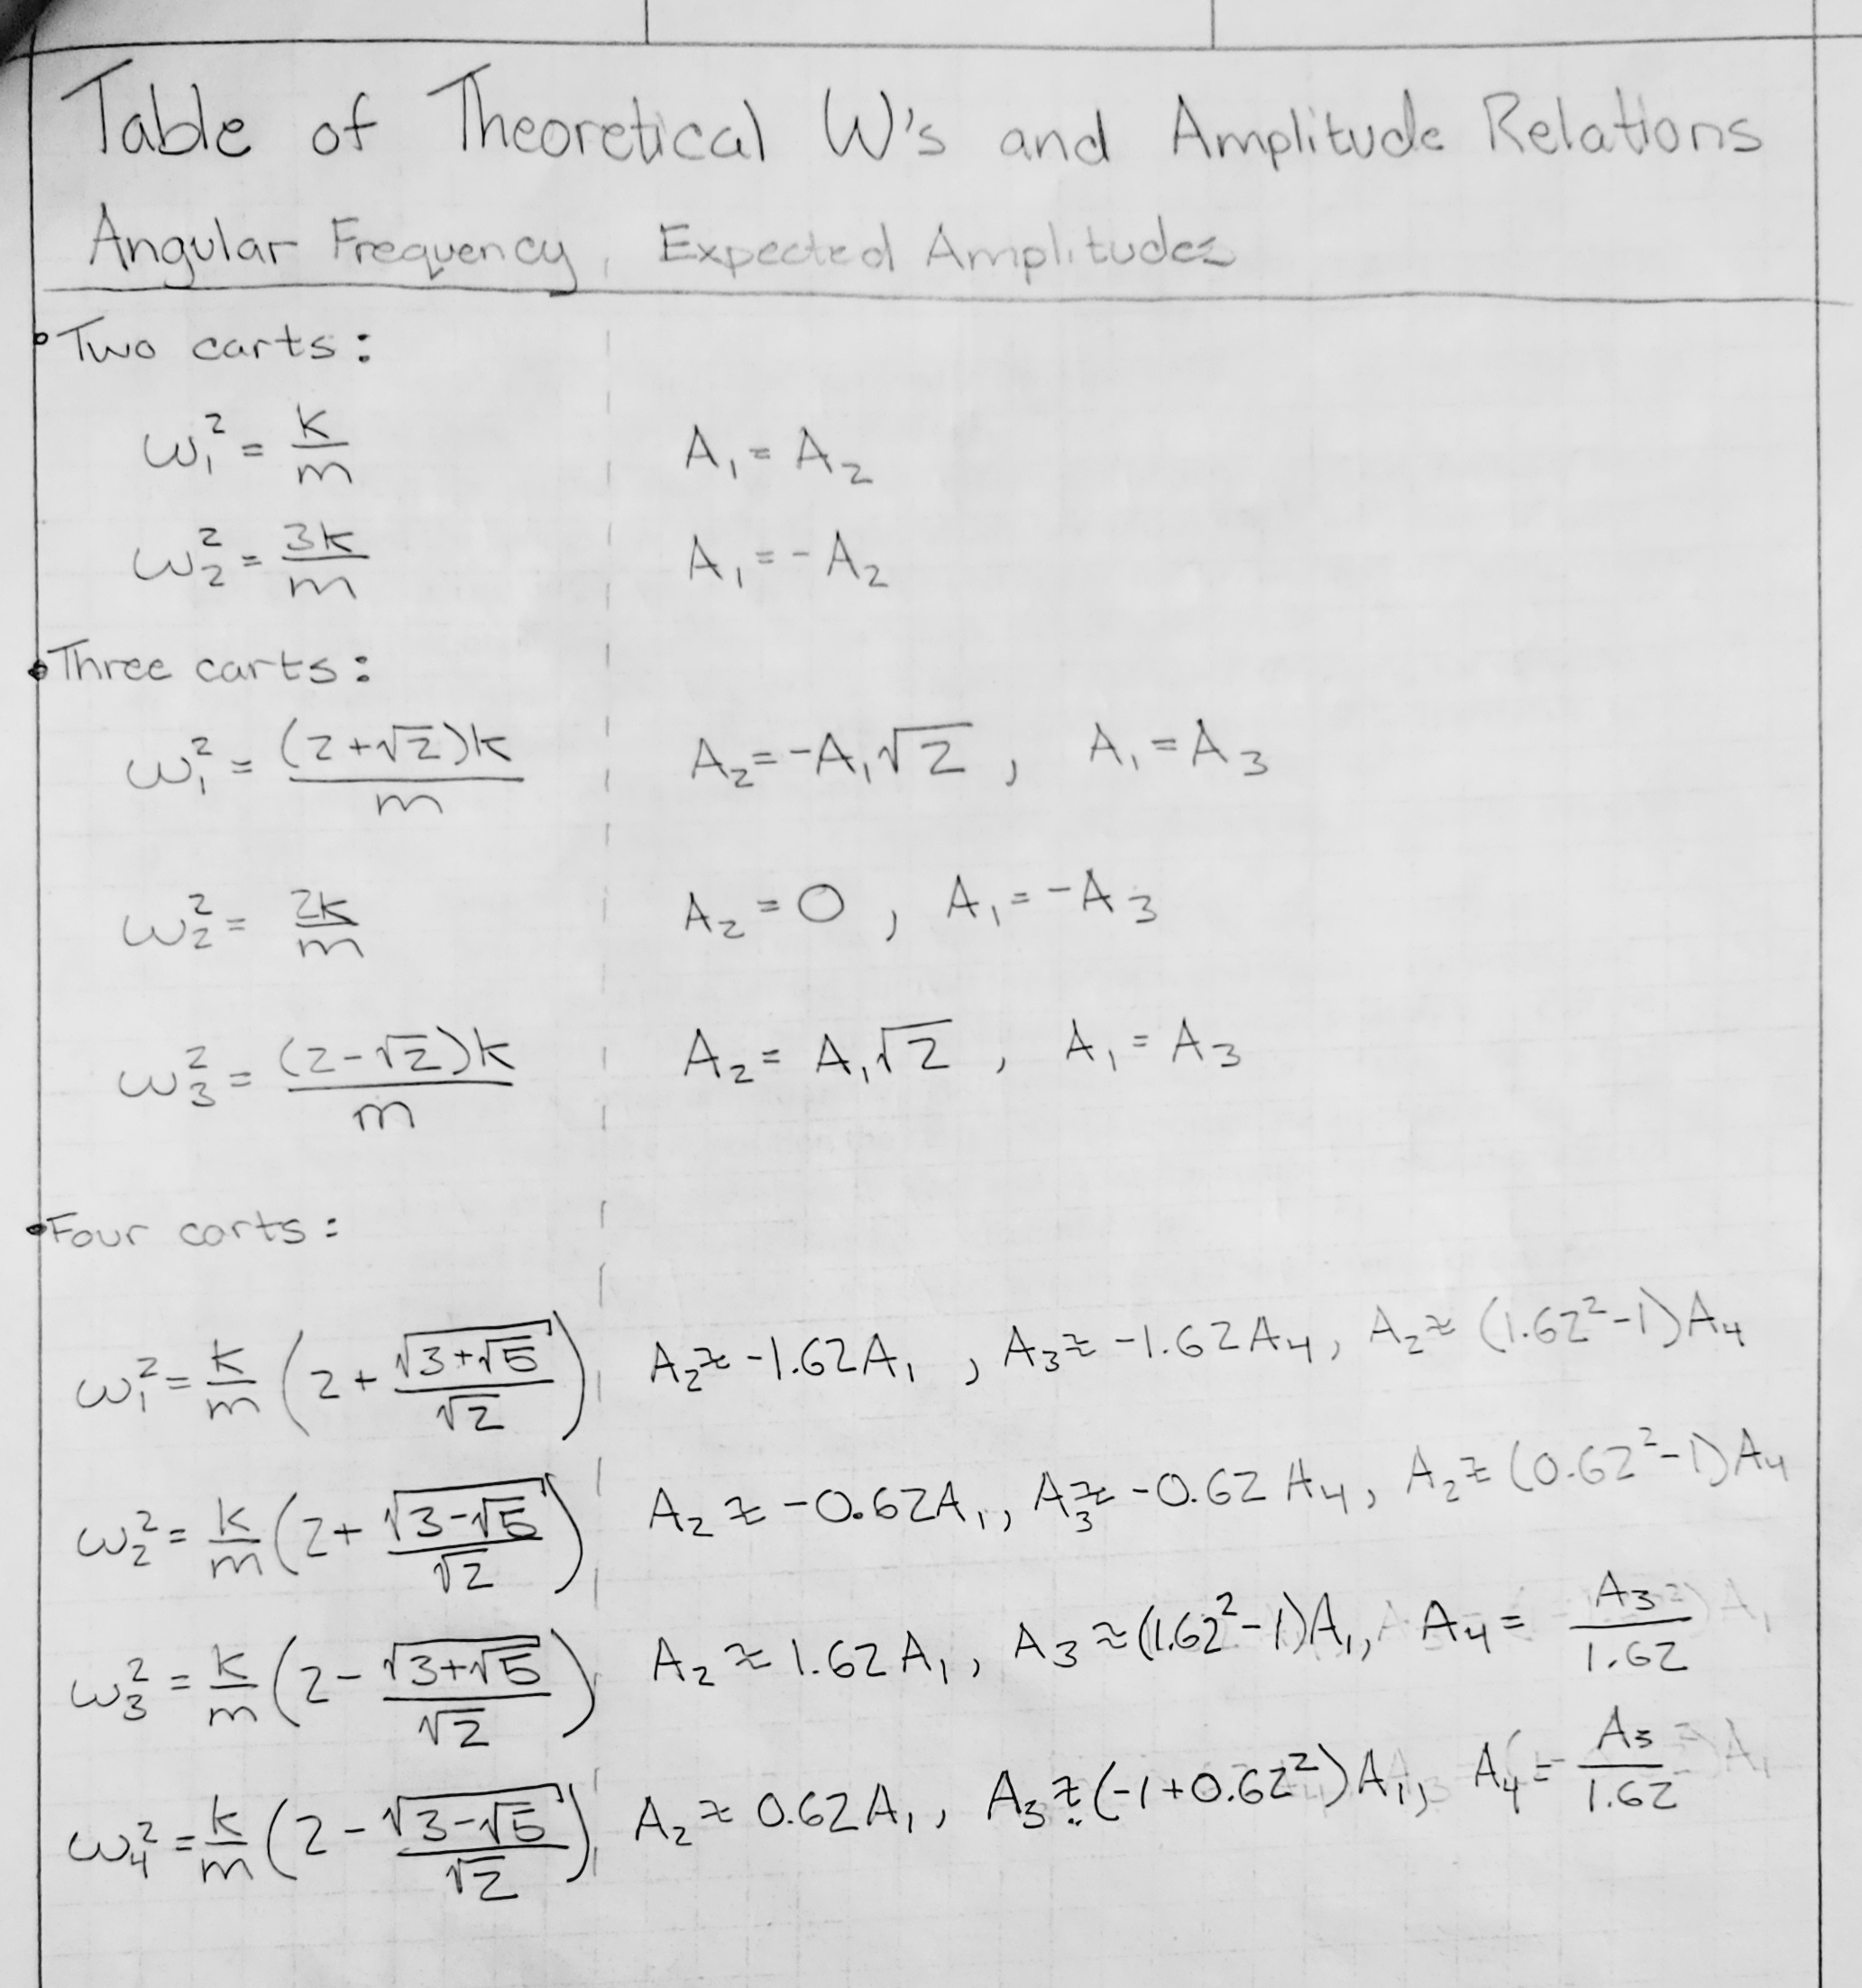 Table of Theoretical W's and Amplitude Relations
Angular Frequency | Expected Amplitudes
• Two carts:
ω₁² = k/m | A₁ = A₂
ω₂² = 3k/m | A₁ = -A₂
• Three carts:
ω₁² = (2+√2)k/m | A₂ = -A₁√2 , A₁ = A₃
ω₂² = 2k/m | A₂ = 0 , A₁ = -A₃
ω₃² = (2-√2)k/m | A₂ = A₁√2 , A₁ = A₃
• Four carts:
ω₁² = k/m (2 + √(3+√5)/√2) | A₂ ≈ -1.62A₁ , A₃ ≈ -1.62A₄, A₂ ≈ (1.62²-1)A₄
ω₂² = k/m (2 + √(3-√5)/√2) | A₂ ≈ -0.62A₁, A₃ ≈ -0.62A₄, A₂ ≈ (0.62²-1)A₄
ω₃² = k/m (2 - √(3+√5)/√2) | A₂ ≈ 1.62A₁, A₃ ≈ (1.62²-1)A₁, A₄ = A₃/1.62
ω₄² = k/m (2 - √(3-√5)/√2) | A₂ ≈ 0.62A₁, A₃ ≈ (-1+0.62²)A₁, A₄ = A₃/1.62